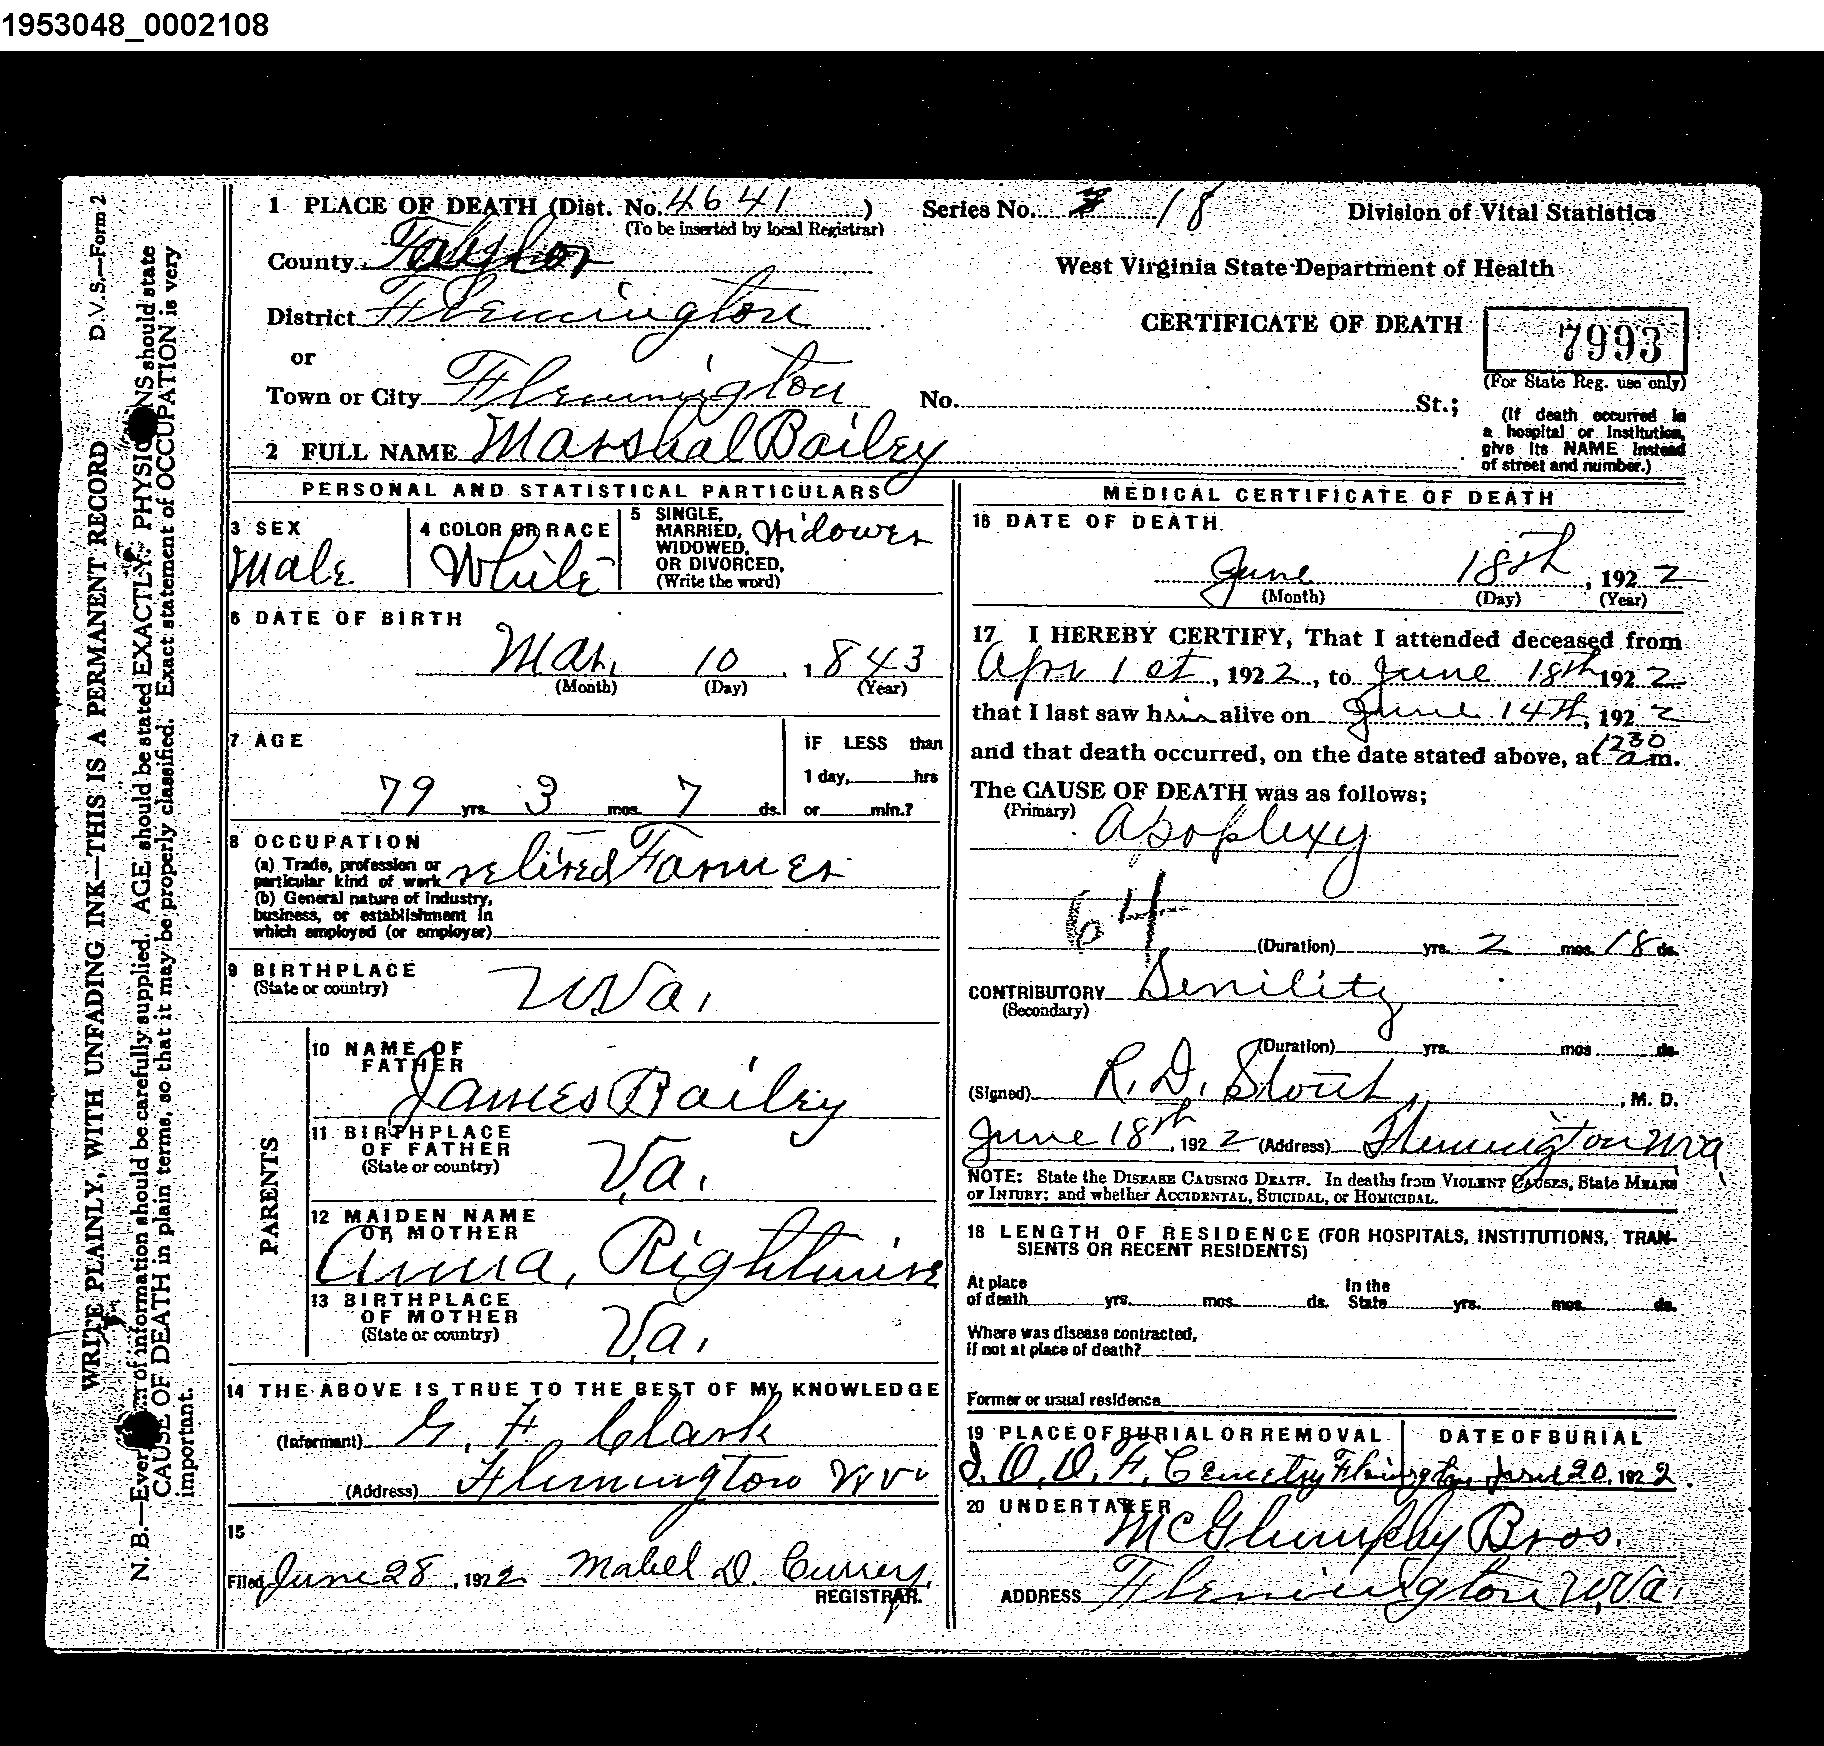 1953048_0002108
D.V.S.—Form 2
WRITE PLAINLY, WITH UNFADING INK—THIS IS A PERMANENT RECORD
N. B.—Every item of information should be carefully supplied. AGE should be stated EXACTLY. PHYSICIANS should state
CAUSE OF DEATH in plain terms, so that it may be properly classified. Exact statement of OCCUPATION is very
important.
1 PLACE OF DEATH (Dist. No. 4641 ) Series No. 18 Division of Vital Statistics
(To be inserted by local Registrar)
County Taylor
West Virginia State Department of Health
District Flemington
CERTIFICATE OF DEATH 7993
or
(For State Reg. use only)
Town or City Flemington No. St.;
(If death occurred in
a hospital or Institution,
give its NAME instead
of street and number.)
2 FULL NAME Marshal Bailey
PERSONAL AND STATISTICAL PARTICULARS
3 SEX
Male
4 COLOR OR RACE
White
5 SINGLE,
MARRIED,
WIDOWED,
OR DIVORCED,
(Write the word)
Widower
6 DATE OF BIRTH
Mar. 10, 1843
(Month) (Day) (Year)
7 AGE
79 yrs. 3 mos. 7 ds.
IF LESS than
1 day, hrs
or min.?
8 OCCUPATION
(a) Trade, profession or
particular kind of work retired Farmer
(b) General nature of industry,
business, or establishment in
which employed (or employer)
9 BIRTHPLACE
(State or country)
W.Va.
PARENTS
10 NAME OF
FATHER
James Bailey
11 BIRTHPLACE
OF FATHER
(State or country)
Va.
12 MAIDEN NAME
OR MOTHER
Anna, Rightmire
13 BIRTHPLACE
OF MOTHER
(State or country)
Va.
14 THE ABOVE IS TRUE TO THE BEST OF MY KNOWLEDGE
(Informant) G. F. Clark
(Address) Flemington W Va
15
Filed June 28, 1922 Mabel D. Currey,
REGISTRAR.
MEDICAL CERTIFICATE OF DEATH
16 DATE OF DEATH
June 18th, 1922
(Month) (Day) (Year)
17 I HEREBY CERTIFY, That I attended deceased from
Apr 1st, 1922, to June 18th 1922
that I last saw him alive on June 14th, 1922
and that death occurred, on the date stated above, at 1230 a m.
The CAUSE OF DEATH was as follows;
(Primary) Apoplexy
64
(Duration) yrs. 2 mos. 18 ds.
CONTRIBUTORY Senility
(Secondary)
(Duration) yrs. mos. ds.
(Signed) R. D. Stout, M. D.
June 18th, 1922 (Address) Flemington W Va
NOTE: State the DISEASE CAUSING DEATH. In deaths from VIOLENT CAUSES, State MEANS
OF INJURY; and whether ACCIDENTAL, SUICIDAL, or HOMICIDAL.
18 LENGTH OF RESIDENCE (FOR HOSPITALS, INSTITUTIONS, TRAN-
SIENTS OR RECENT RESIDENTS)
At place
of death yrs. mos. ds.
In the
State yrs. mos. ds.
Where was disease contracted,
if not at place of death?
Former or usual residence
19 PLACE OF BURIAL OR REMOVAL
I. O. O. F. Cemetry Flemington
DATE OF BURIAL
June 20, 1922
20 UNDERTAKER
McGlumphy Bros.
ADDRESS Flemington W.Va.